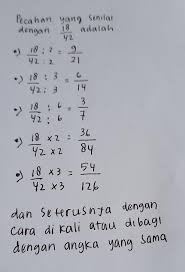 Pecahan yang senilai
dengan 18/42 adalah
•) 18/42 : 2/2 = 9/21
•) 18/42 : 3/3 = 6/14
•) 18/42 : 6/6 = 3/7
•) 18/42 × 2/2 = 36/84
•) 18/42 × 3/3 = 54/126
dan seterusnya dengan
cara di kali atau dibagi
dengan angka yang sama